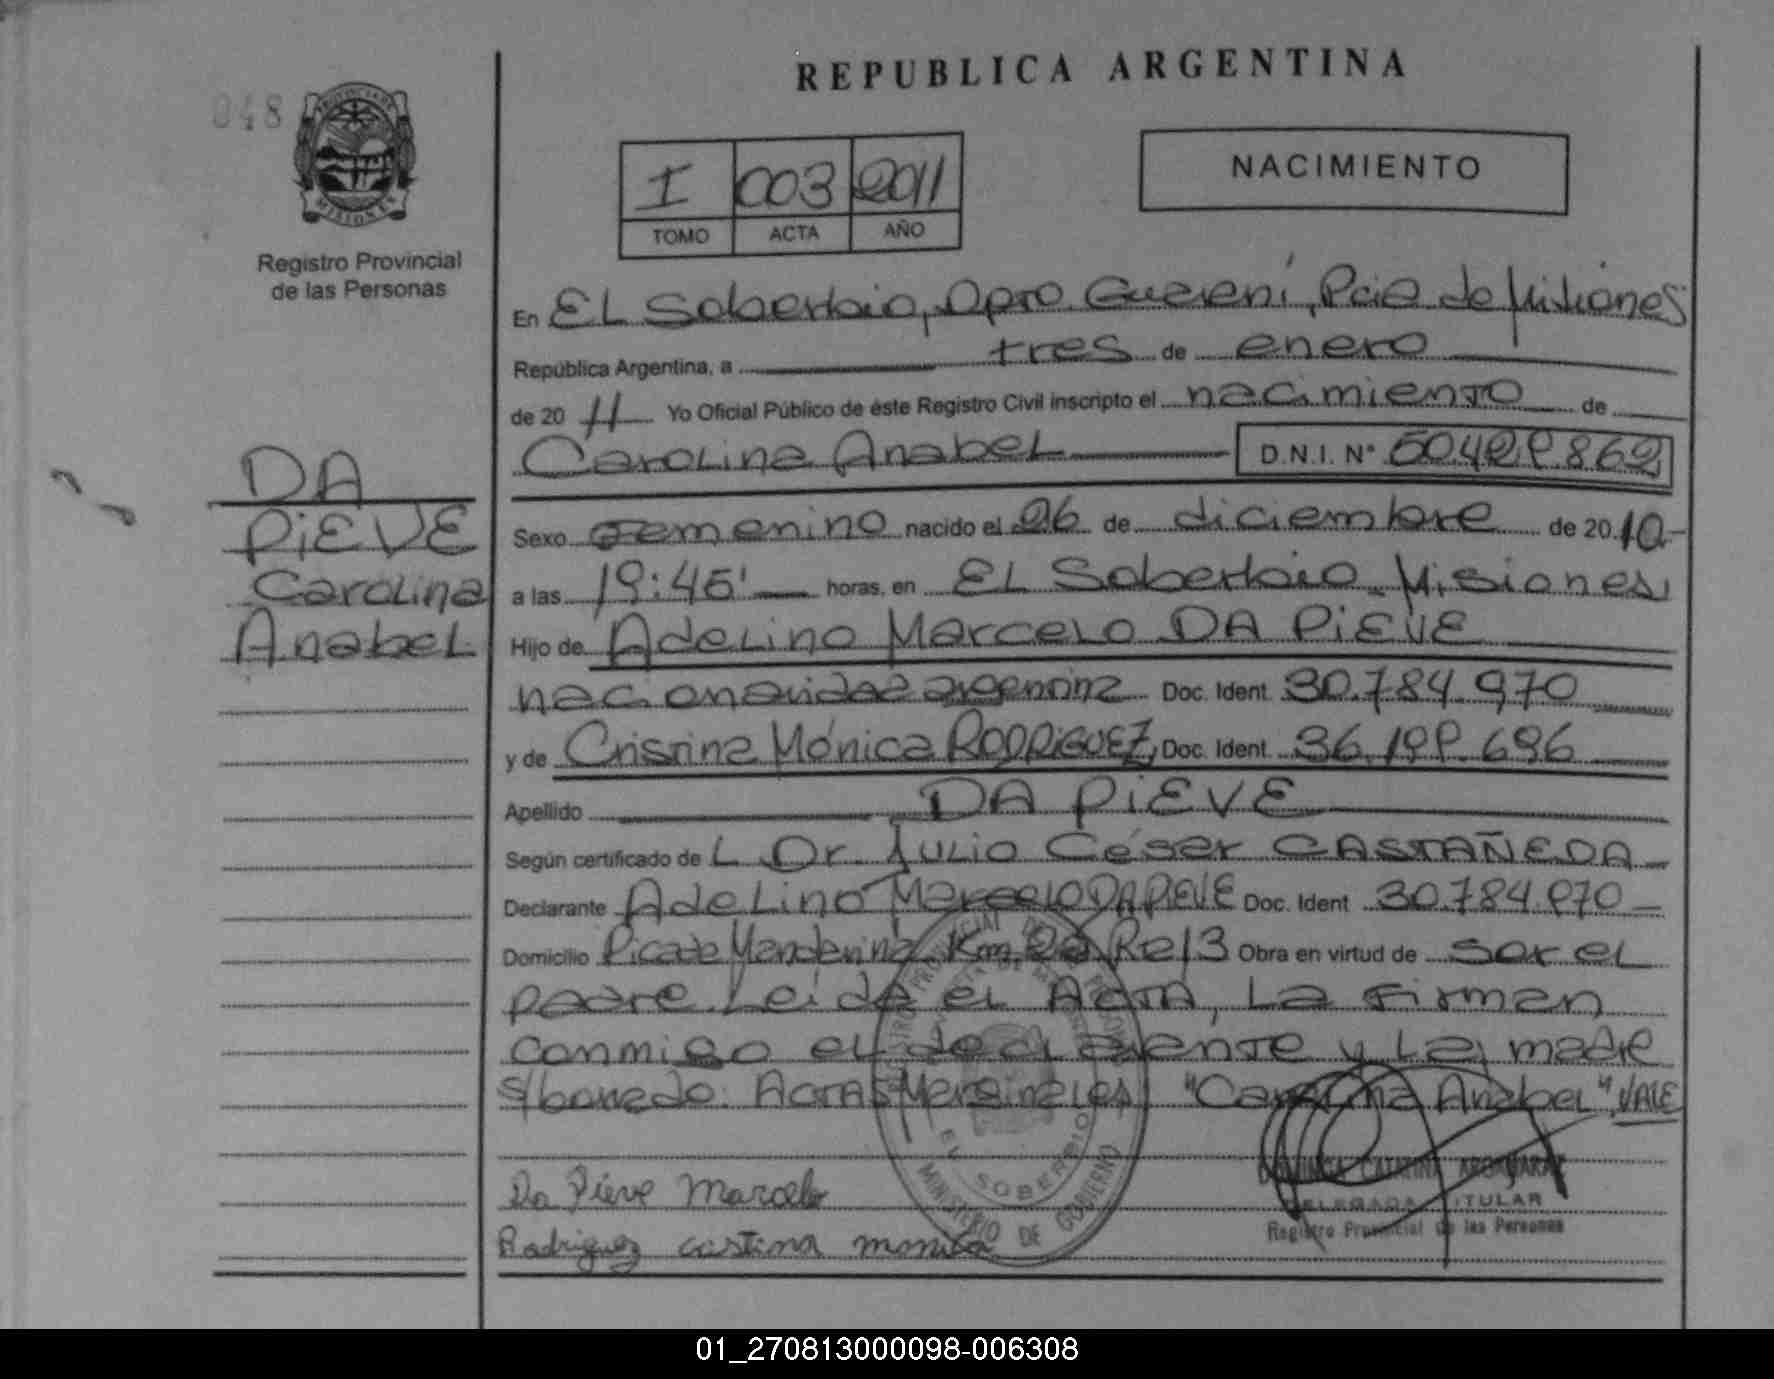 REPUBLICA ARGENTINA
048
PROVINCIA DE
MISIONES
Registro Provincial
de las Personas
I 003 2011
TOMO ACTA AÑO
NACIMIENTO
En El Soberbio, Dpto. Guaraní, Pcia de Misiones
República Argentina, a tres de enero
de 20 11 Yo Oficial Público de éste Registro Civil inscripto el nacimiento de
Carolina Anabel D.N.I. N°
DA
PIEVE
Carolina
Anabel
Sexo Femenino nacido el 26 de diciembre de 20 10.-
a las 19:45' horas, en El Soberbio Misiones
Hijo de Adelino Marcelo DA PIEVE
nacionalidad argentina Doc. Ident. 30.784.970
y de Cristina Mónica RODRIGUEZ, Doc. Ident. 36.199.696
Apellido DA PIEVE
Según certificado de L Dr. Julio César CASTAÑEDA
Declarante Adelino Marcelo DA PIEVE Doc. Ident 30.784.970
Domicilio Picada Mandarina Km Ra 13 Obra en virtud de ser el
padre. Leída el ACTA, La firman
conmigo el declarante y La madre
s/borrado: ACTAS Marginales "Carolina Anabel" VALE
Da Pieve Marcelo
Rodriguez cristina monica
EL SOBERBIO
MINISTERIO DE GOBIERNO
DELEGADA TITULAR
Registro Provincial de las Personas
01_270813000098-006308